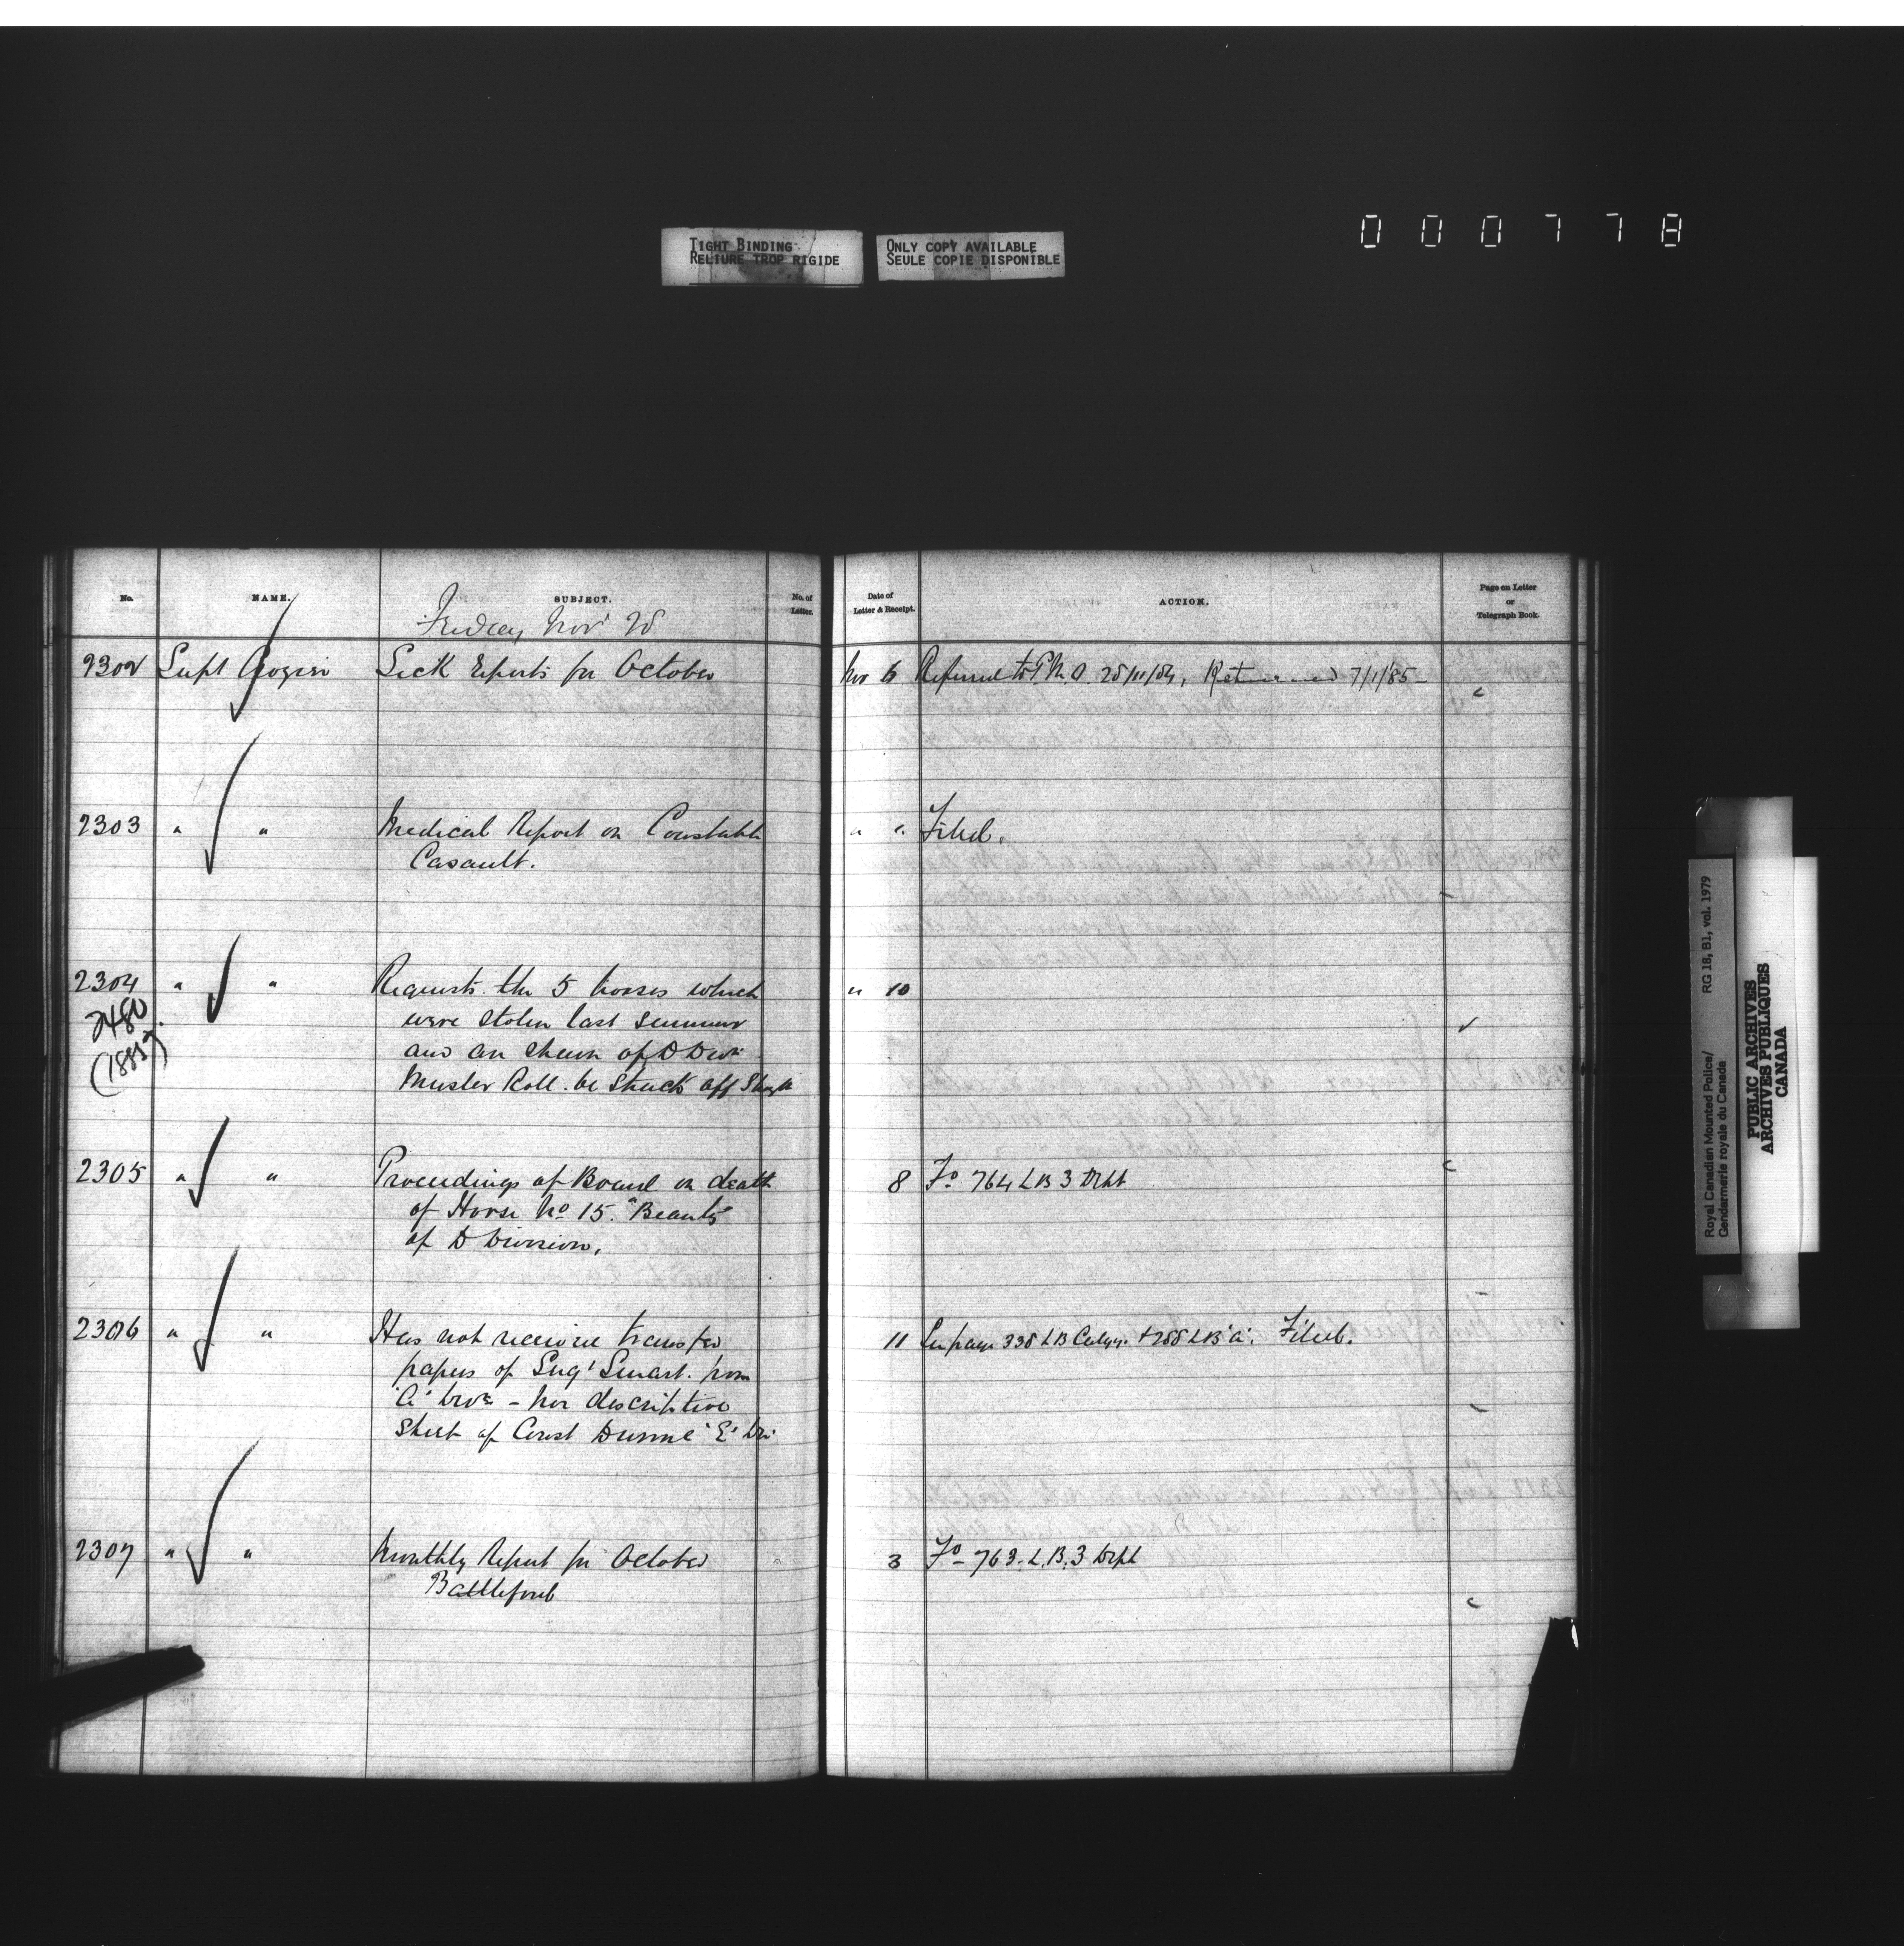 000778
TIGHT BINDING
RELIURE TROP RIGIDE
ONLY COPY AVAILABLE
SEULE COPIE DISPONIBLE
No.
NAME.
SUBJECT.
No. of
Letter.
Date of
Letter & Receipt.
ACTION.
Page on Letter
or
Telegraph Book.
Friday Nov 28
2302 Supt Sick reports for October Nov 6 Referred to P.M.O. 28/11/84, Returned 7/1/85
2303 " " Medical Report on Constable " " Filed.
Casault.
2304 " " Requests the 5 horses which " 10
2480 were stolen last summer
(1885) and are shewn of D Divn
Muster Roll be struck off
2305 " " Proceedings of Board on death 8 Fo 764 LB 3 Dept
of Horse No 15. "Beauty"
of D Division.
2306 " " Has not receive transfer 11 page 338 LB Calgy. + 288 LB "A". Filed.
papers of Sergt Smart from
"A" Divn - nor descriptive
sheet of Const Dunne "E" Div
2307 " " Monthly Report for October 3 Fo 763. L.B. 3 Dept
Battleford
Royal Canadian Mounted Police/
Gendarmerie royale du Canada
RG 18, B1, vol. 1979
PUBLIC ARCHIVES
ARCHIVES PUBLIQUES
CANADA